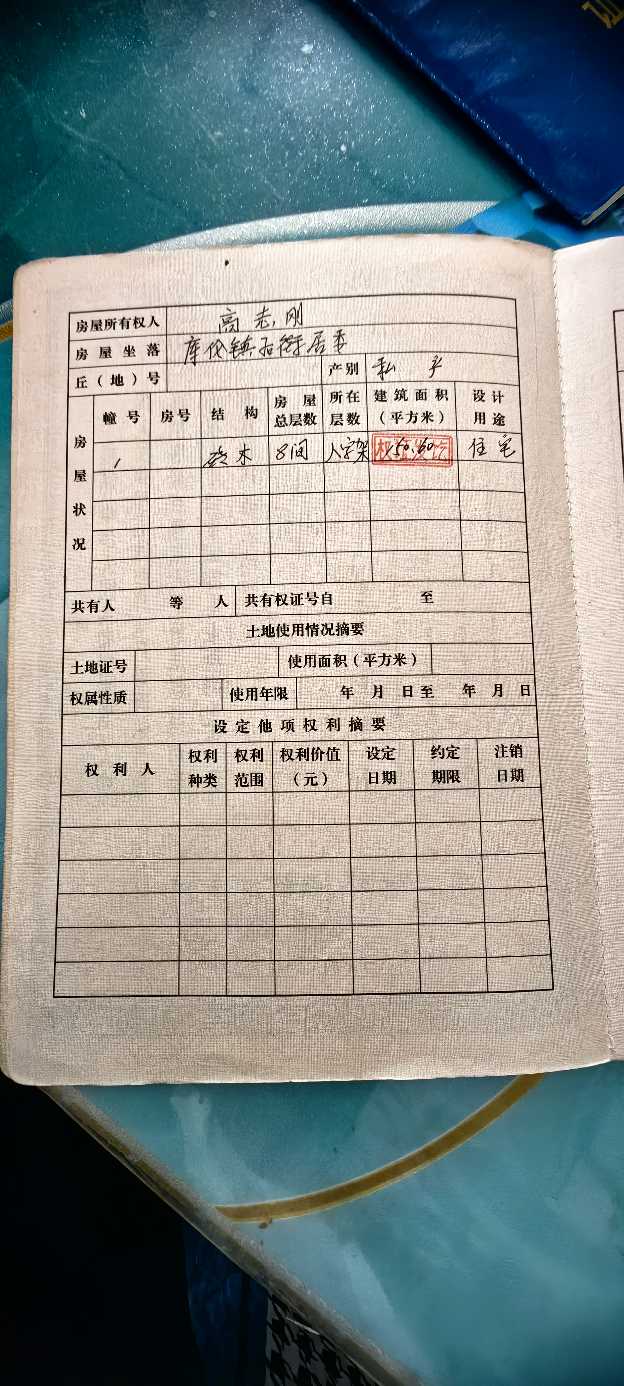 房屋所有权人 高志刚
房屋坐落 库伦镇 街居委
丘（地）号 产别 私产
房屋状况
幢号 房号 结构 房屋总层数 所在层数 建筑面积（平方米） 设计用途
1 砖木 8间 人字架 住宅
共有人 等 人 共有权证号自 至
土地使用情况摘要
土地证号 使用面积（平方米）
权属性质 使用年限 年 月 日至 年 月 日
设定他项权利摘要
权利人 权利种类 权利范围 权利价值（元） 设定日期 约定期限 注销日期